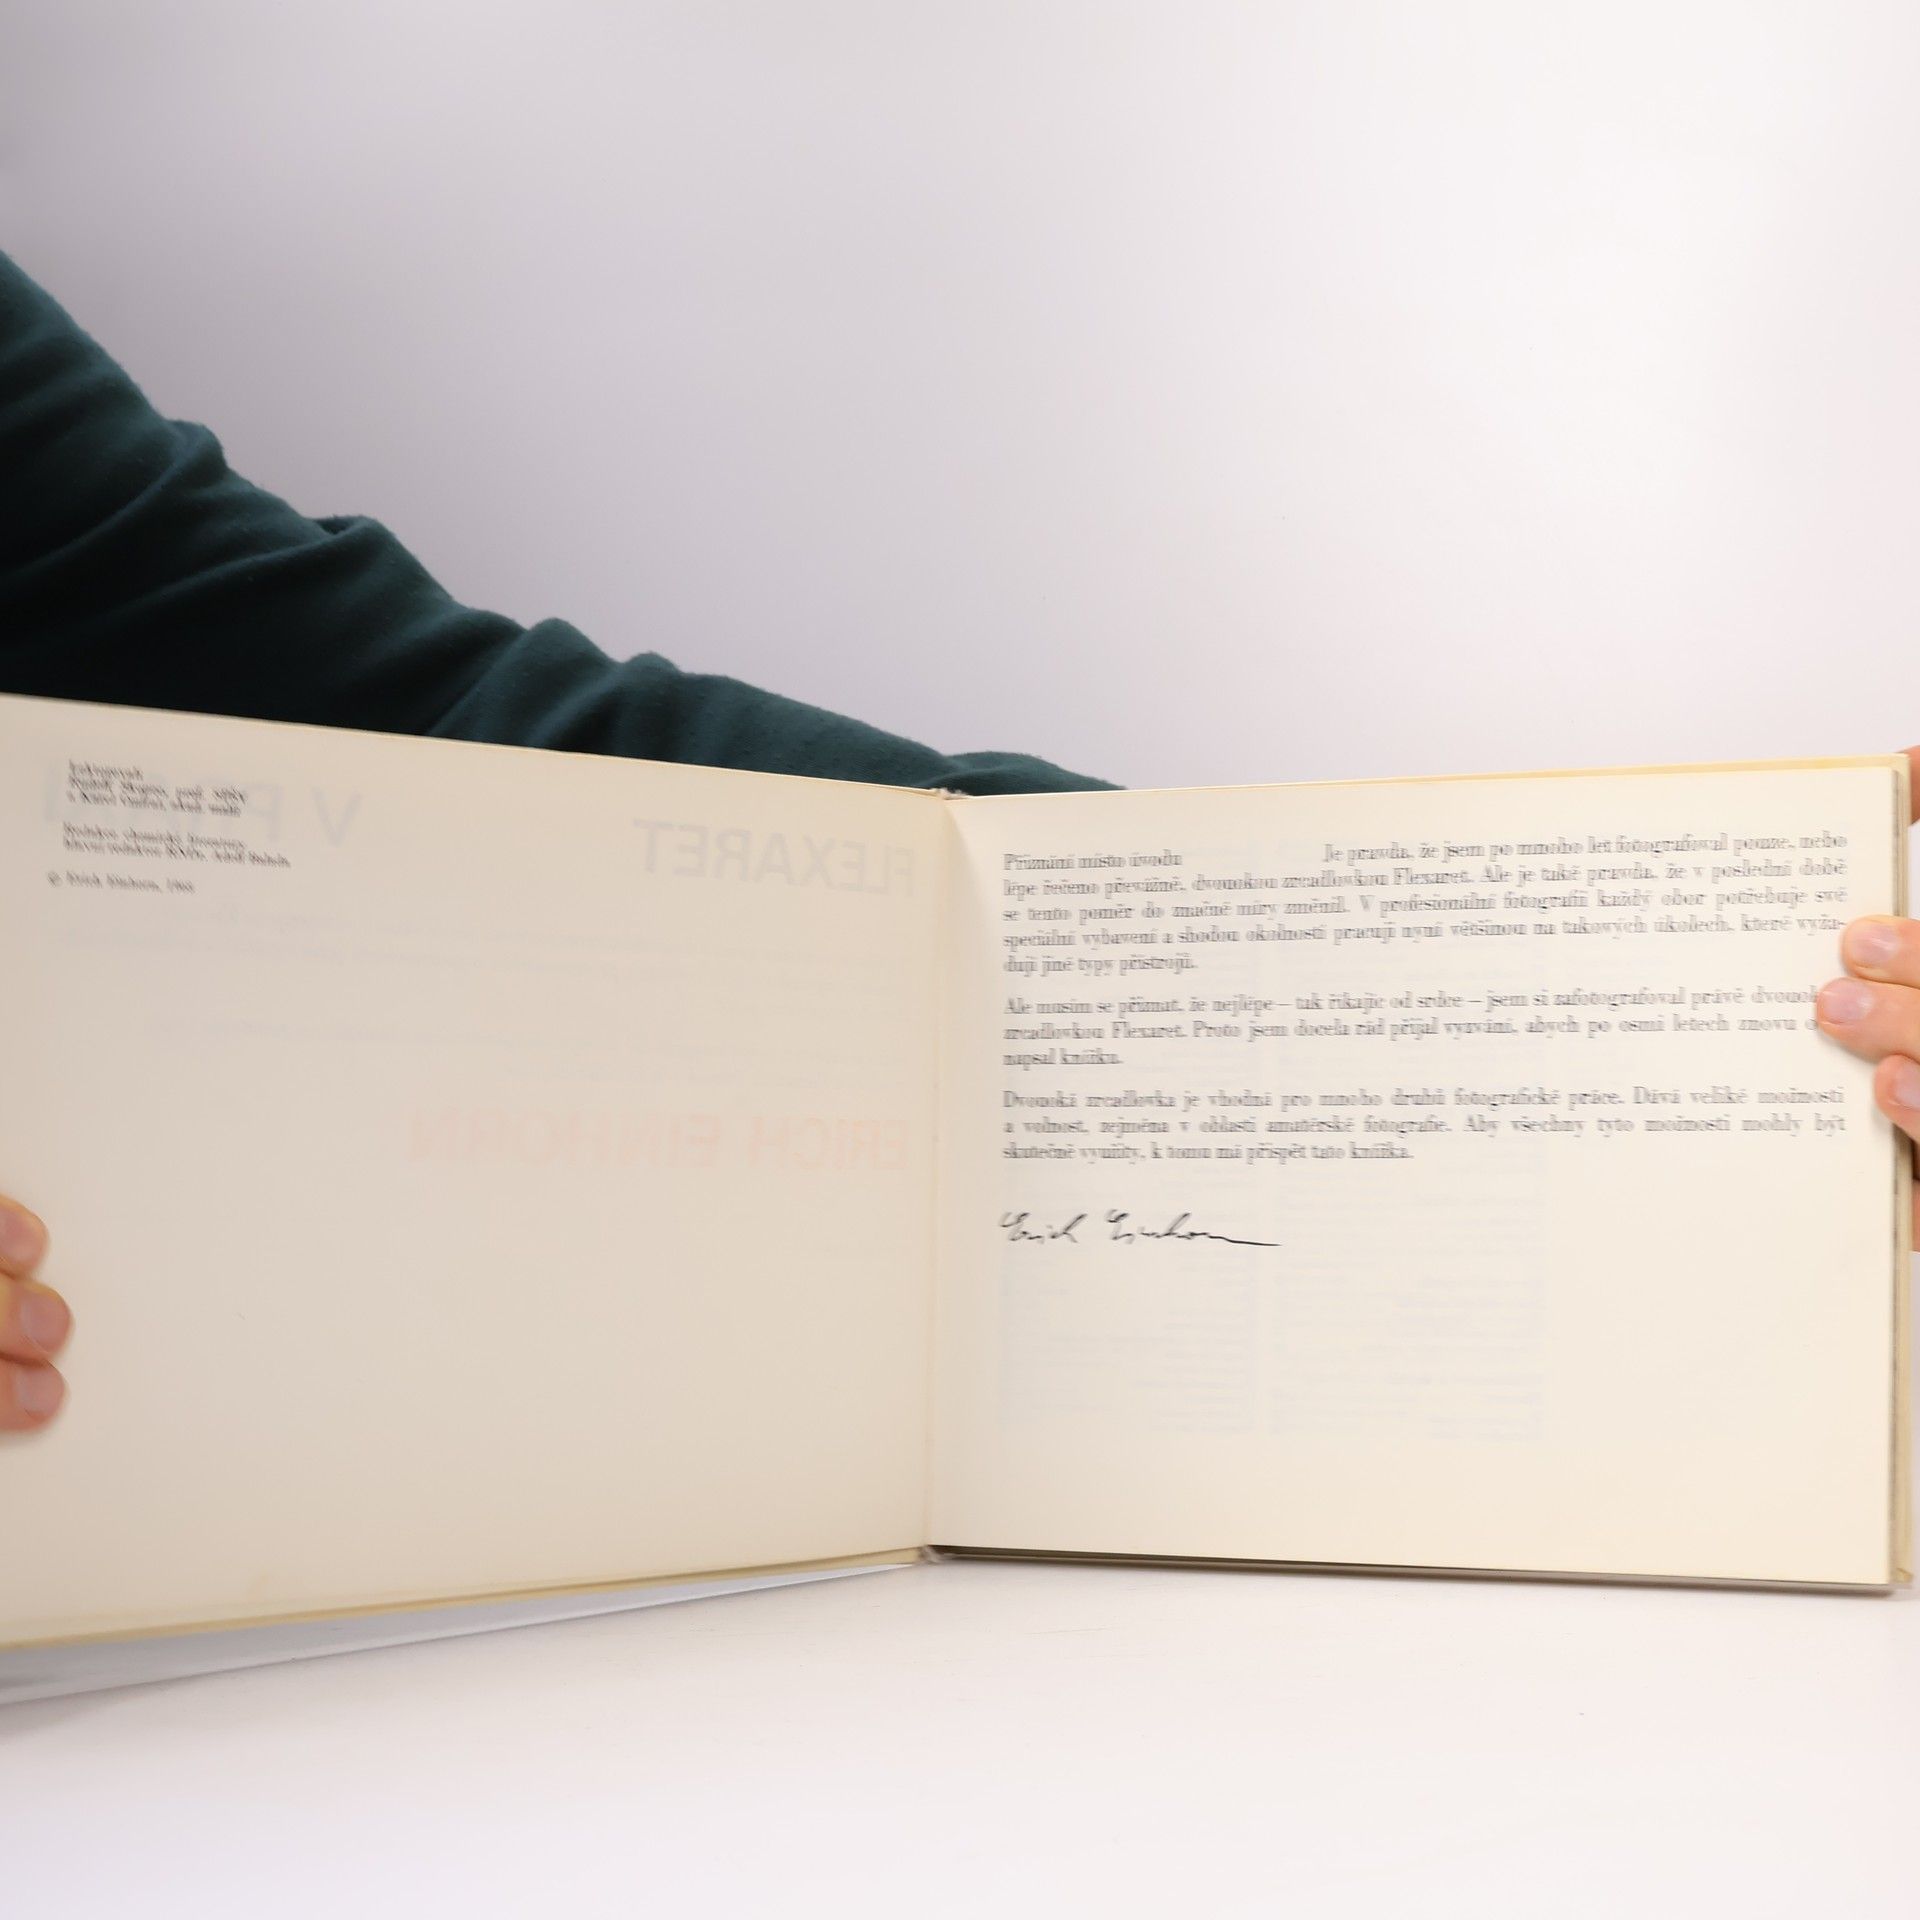 Lektorovali
© Erich Einhorn, 196
Přiznání místo úvodu Je pravda, že jsem po mnoho let fotografoval pouze, nebo
lépe řečeno převážně, dvouokou zrcadlovkou Flexaret. Ale je také pravda, že v poslední době
se tento poměr do značné míry změnil. V profesionální fotografii každý obor potřebuje své
speciální vybavení a shodou okolností pracuji nyní většinou na takových úkolech, které vyža-
dují jiné typy přístrojů.
Ale musím se přiznat, že nejlépe – tak říkajíc od srdce – jsem si zafotografoval právě dvouok
zrcadlovkou Flexaret. Proto jsem docela rád přijal vyzvání, abych po osmi letech znovu o
napsal knížku.
Dvouoká zrcadlovka je vhodná pro mnoho druhů fotografické práce. Dává veliké možnosti
a volnost, zejména v oblasti amatérské fotografie. Aby všechny tyto možnosti mohly být
skutečně využity, k tomu má přispět tato knížka.
Erich Einhorn